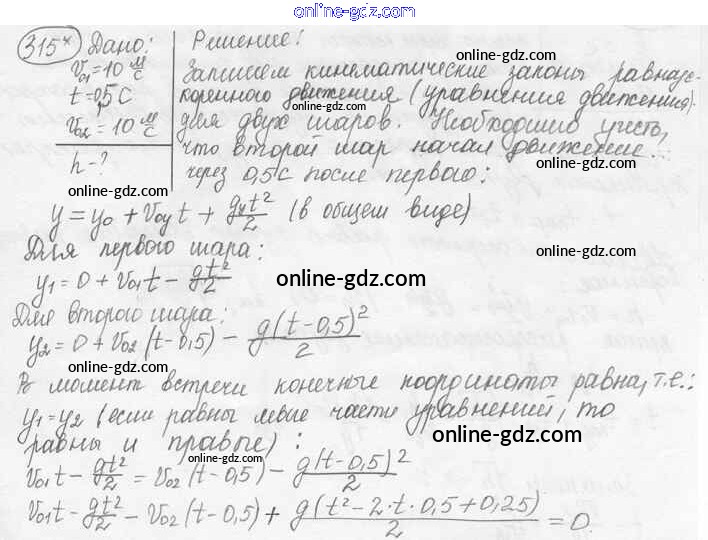 online-gdz.com
315* Дано: Решение:
V₀₁=10 м/с
t=0,5 С
V₀₂=10 м/с
h-?
online-gdz.com
Запишем кинематические законы равноус-
коренного движения (уравнения движения)
online-gdz.com
для двух шаров. Необходимо учесть,
что второй шар начал движение
online-gdz.com
через 0,5 с после первого:
online-gdz.com
y = y₀ + V₀yt + gyt²/2 (в общем виде)
online-gdz.com
Для первого шара:
online-gdz.com
y₁ = 0 + V₀₁t - gt²/2
online-gdz.com
Для второго шара:
y₂ = 0 + V₀₂(t-0,5) - g(t-0,5)²/2
online-gdz.com
online-gdz.com
В момент встречи конечные координаты равны, т.е.:
y₁=y₂ (если равны левые части уравнений, то
равны и правые):
online-gdz.com
V₀₁t - gt²/2 = V₀₂(t-0,5) - g(t-0,5)²/2
online-gdz.com
V₀₁t - gt²/2 - V₀₂(t-0,5) + g(t²-2·t·0,5+0,25)/2 = 0.
online-gdz.com